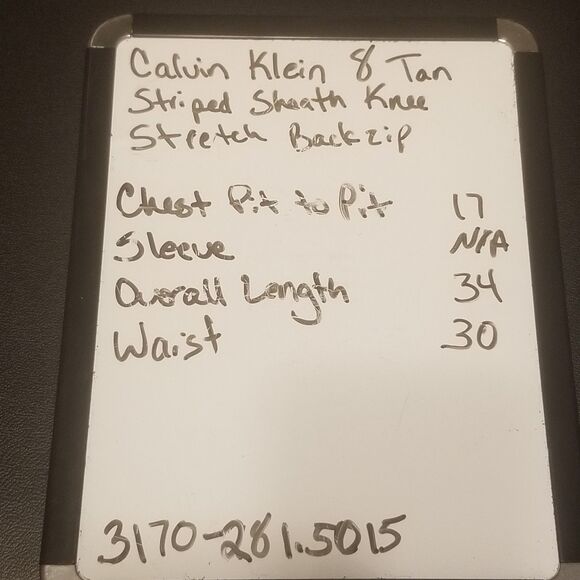 Calvin Klein 8 Tan
Striped Sheath Knee
Stretch Back zip
Chest Pit to Pit 17
Sleeve N/A
Overall Length 34
Waist 30
3170-281.5015